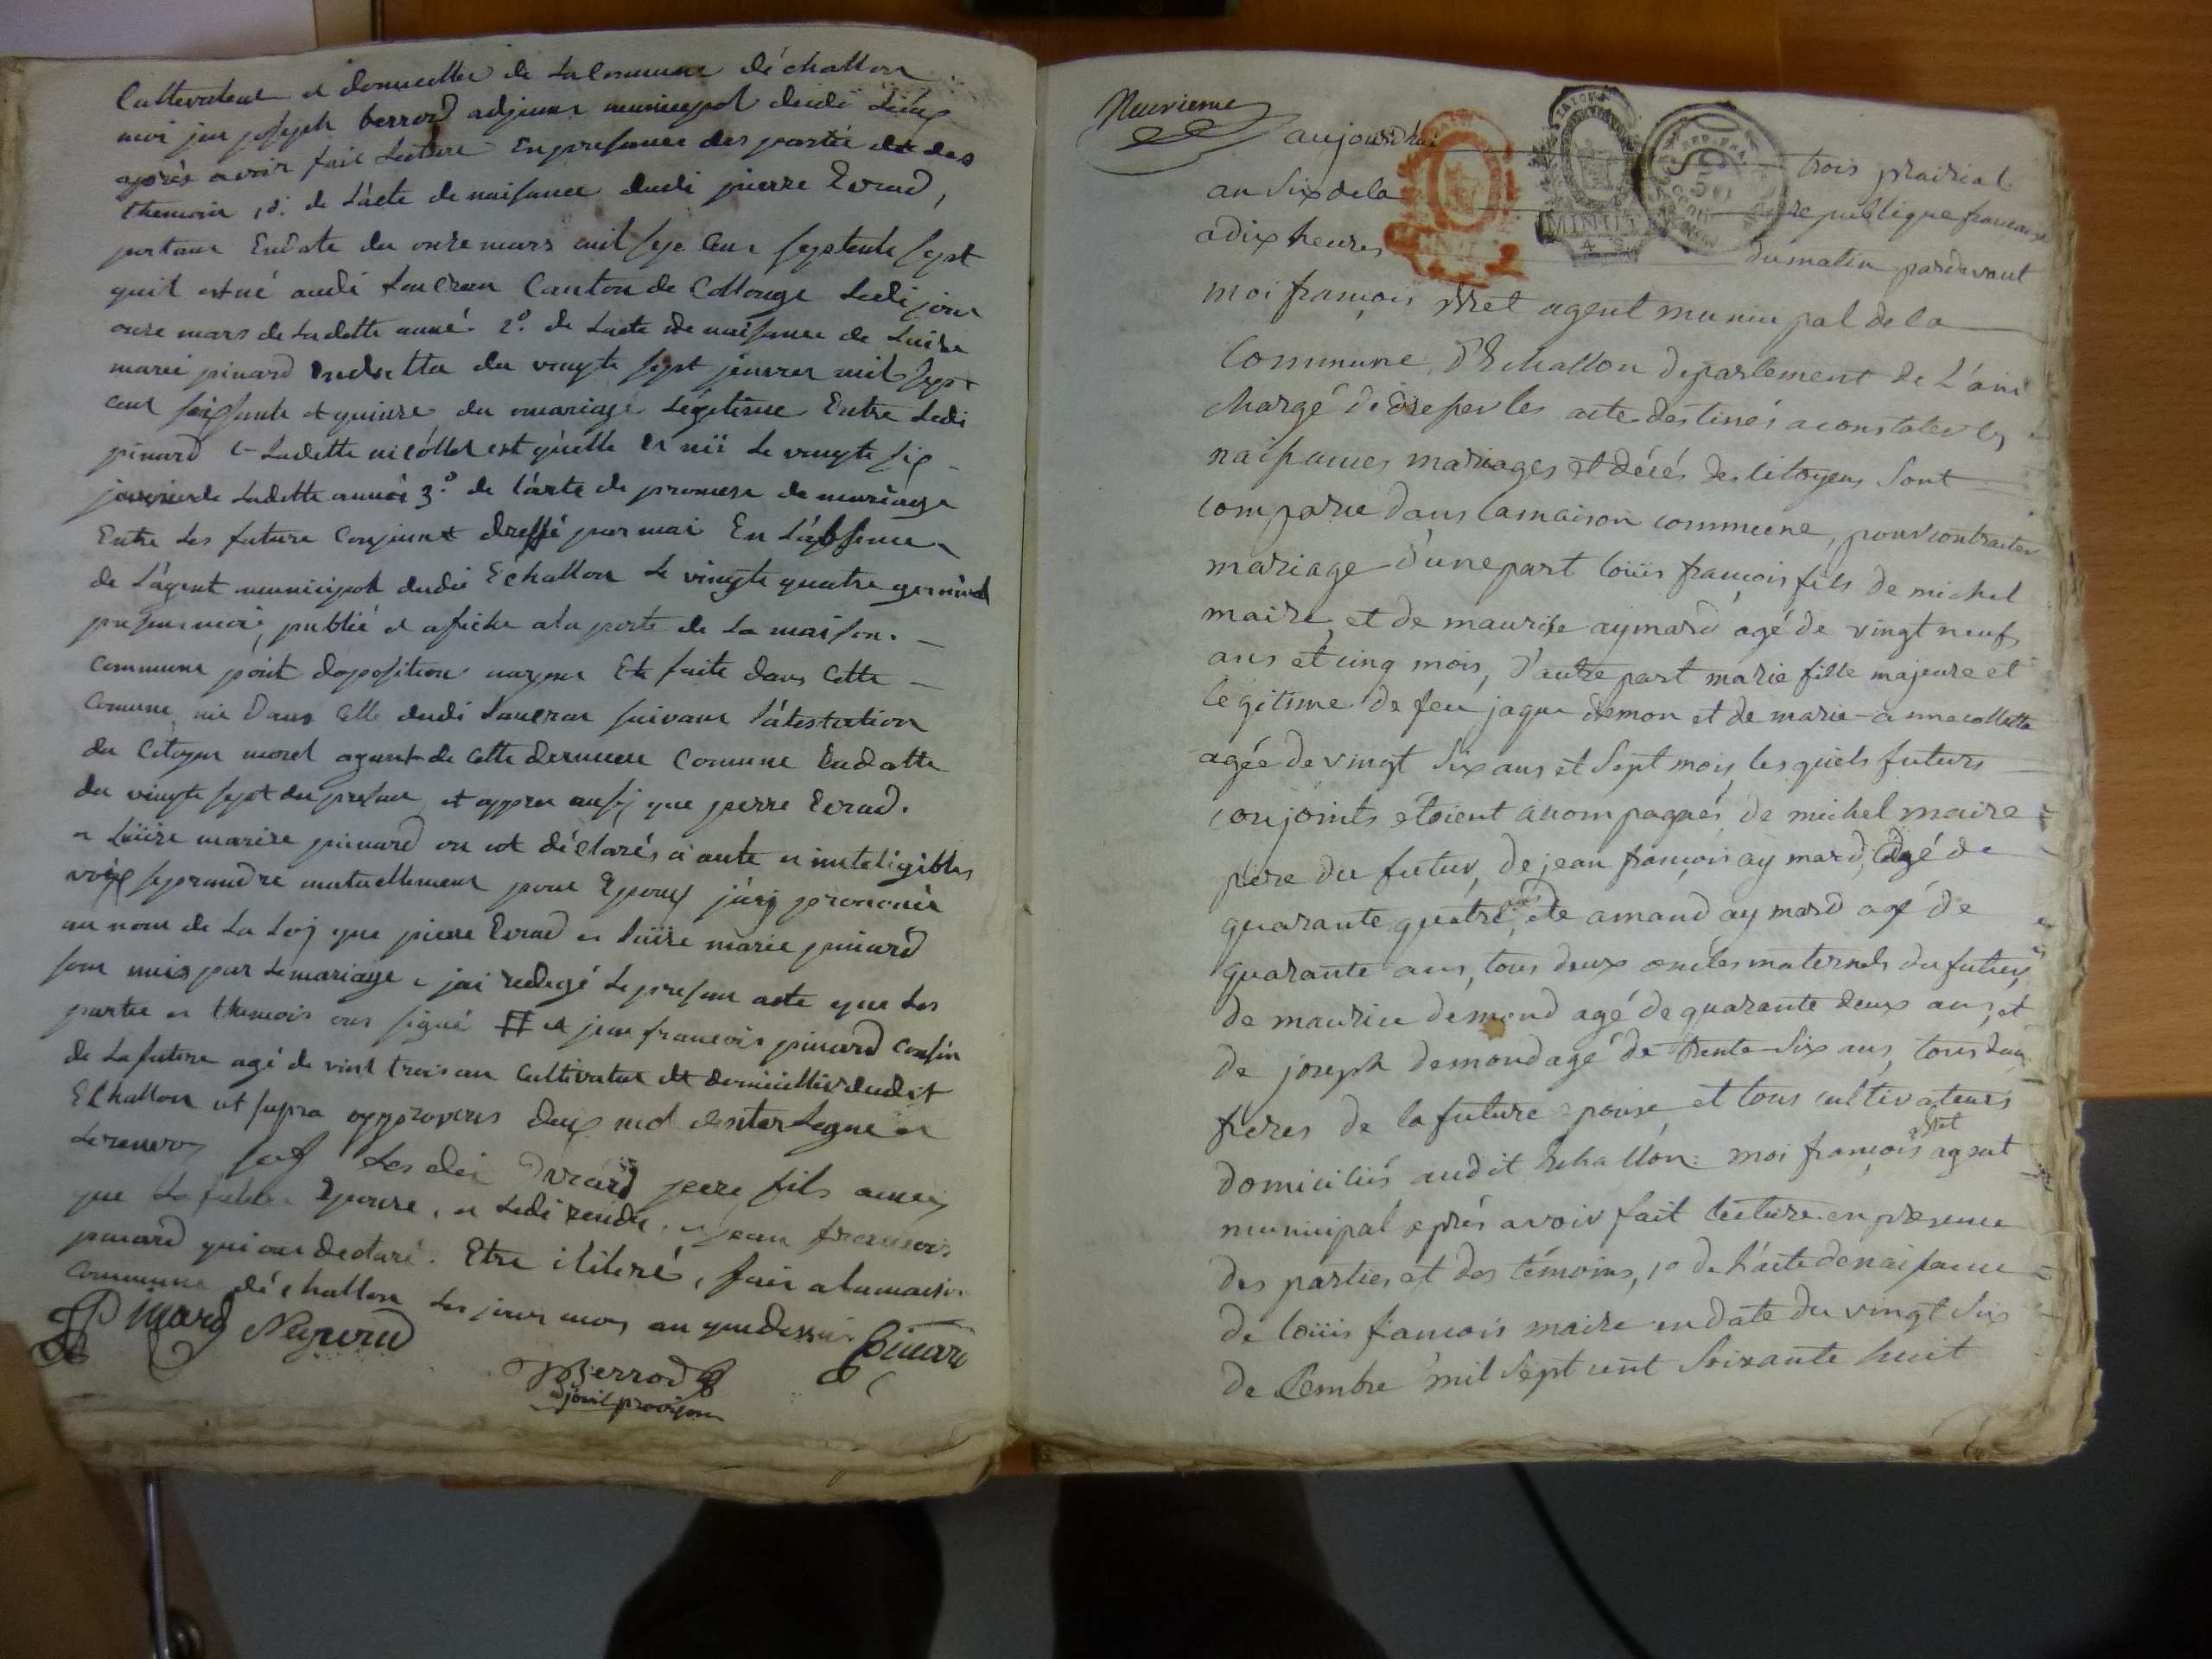 Cultivateur et domicillié de La Commune déchallon
moi jan joseph berrod adjoint municipal dudi Lieu
après avoir fait Lecture En presance des partie et des
themoin 1º. de L'acte de naisance dudi pierre Evrad,
portant Endate du onze mars mil sept Cent septente sept
quil est né audi Canton de Collonge Ledi jour
onze mars de Ladette anné. 2º. de Lacte de naisance de Luise
marie pinard du vingte sept jenvier mil sept
cent soisante et quinse du mariage Légetime Entre Ledi
pinard et Ladette nicóllet est quelle et née Le vingte six
de Ladette année 3º. de l'acte de promese de mariage
Entre Les future Conjoint dressé par moi En L'absence
de L'agent municipal dudi Echallon Le vingte quatre germinal
publié et afiché a la porte de La maison
Commune point doposition nayent Ete faite dans Cette
Comune ni Dans Celle dudi suivant l'atestation
du Citoyen morel agent de Cette Dernière Comune Endatte
du vingte sept du presant et appres ausy que pierre Evrad.
et Luise marie pinard on ot déclarés a aute et inteligibles
voix se prandre mutuellement pour Epoux j'aiy prononcé
au nom de La Loy que pierre Evrad et Luise marie pinard
son unis par Le mariage et jai redigé Le presant acte que Les
partie et themois ons signé # et jean francois pinard Cousin
de La future agé de vint trois an Cultivateur et domicillié dudit
Echallon ut supra approvons deux mot
Le renvoy Evrard pere fils
que La future Epouse, et Ledi et jean francois
pinard qui ont declaré. Etre iliteré, fait a la maison
Commune déchallon Les jour mois an que dessus
Pinard
Berrod
adjoint
Neuvieme
aujourdhui trois prairial
an Six de la republique francaise
a dix heures du matin pardevant
moi françois agent municipal de la
Commune, D'Echallon departement de L'ain
chargé de dresser les acte destinés a constater les
naissances mariages et décés des citoyens Sont
comparu dans la maison commune, pour contracter
mariage d'une part loüis françois fils de michel
maire, et de maurise aymard agé de vingt neuf
ans et cinq mois, D'autre part marie fille majeure et
legitime de feu jaque demon et de marie-anne collette
agée de vingt Six ans et Sept mois, les quels futurs
conjoints étoient accompagnés de michel maire
pere du futur, de jean françois aymard, agé de
quarante quatre, ans de amand aymard agé de
quarante ans, tous deux oncles maternels du futur,
de maurice demond agé de quarante deux ans, et
de joseph demond agé de trente Six ans, tous deux
freres de la future epouse, et tous cultivateurs
domiciliés audit Echallon: moi françois agent
municipal aprés avoir fait lecture en presence
des parties et des témoins, 1º de l'acte de naissance
de loüis francois maire en date du vingt Six
decembre mil Sept cent Soixante huit